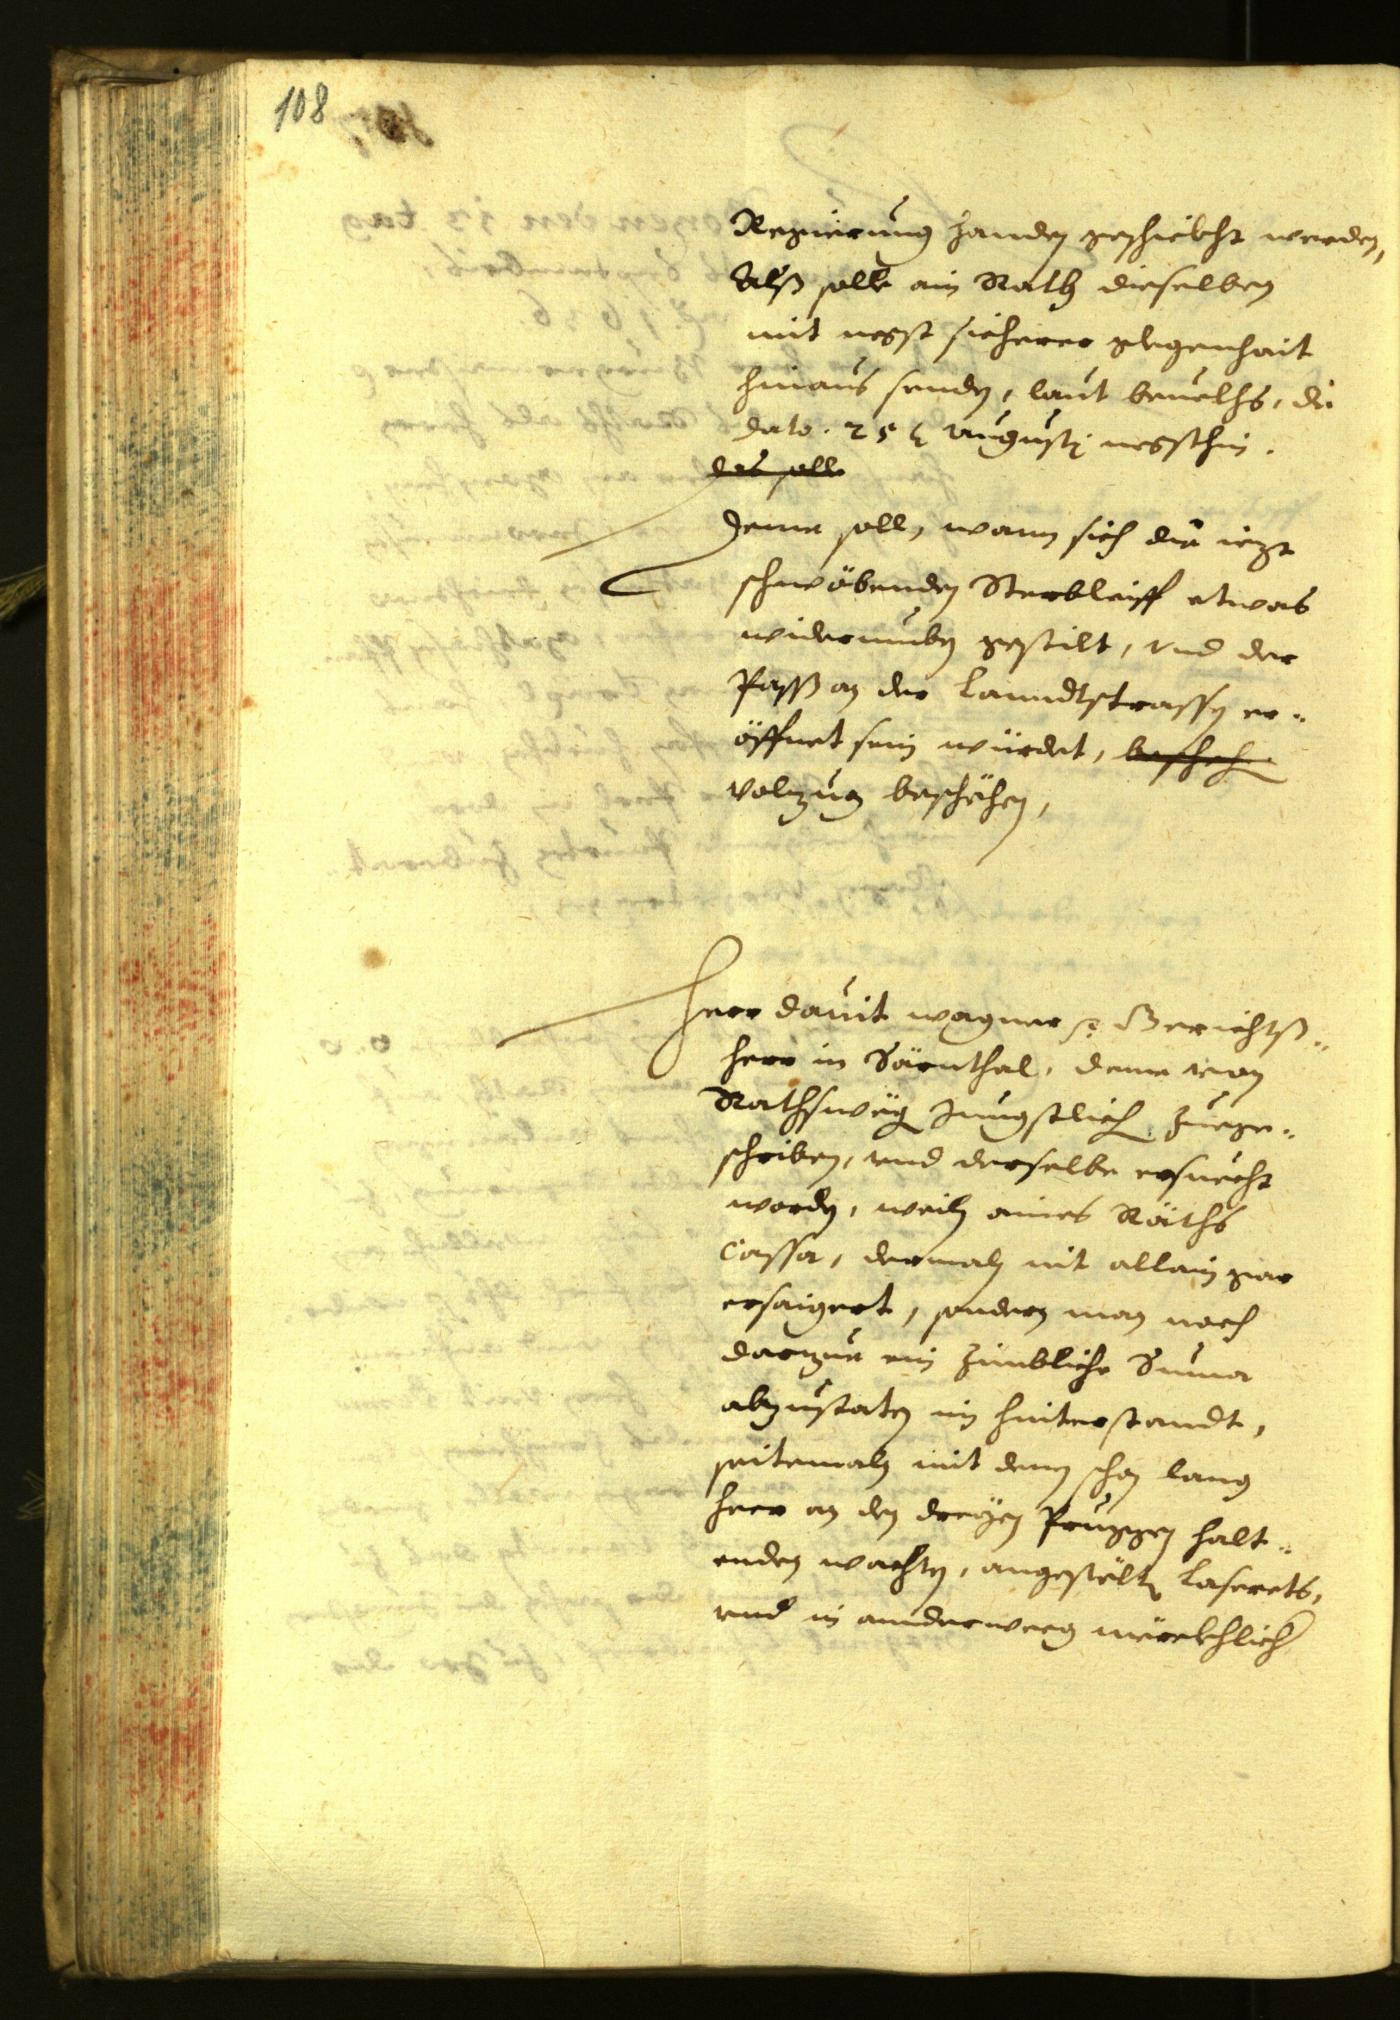 108
Regierung handen geschickht werden,
Alß solle ain Rath dieselben
mit negst sicherer glegenhait
hinaus senden, laut beuelhs, de
dato. 25 t Augustj negsthin.
des solle
Deme soll, wann sich die iezt
schwöbenden Sterbleiff etwas
widerumben gestilt, vnd der
Passß an der Lanndtstrassen er-
öffnet sein würdet, bescheh
Volzug beschehen,
Herr Dauit Wagner p. Gerichtß-
herr in Särnthal, deme man
Rathsweg Jungstlich zuege-
schriben, vnd derselbe ersuecht
worden, weiln aines Raths
Cassa, dermaln nit allain gar
ersaigert, sondern man noch
darzue ein zimbliche Suma
abzustaten im hinterstandt,
seitemaln mit denen schon lang
heer an den dreyen Pruggen halt-
enden wachten, angestelten Laserets,
vnd in annderweeg mörckhlich